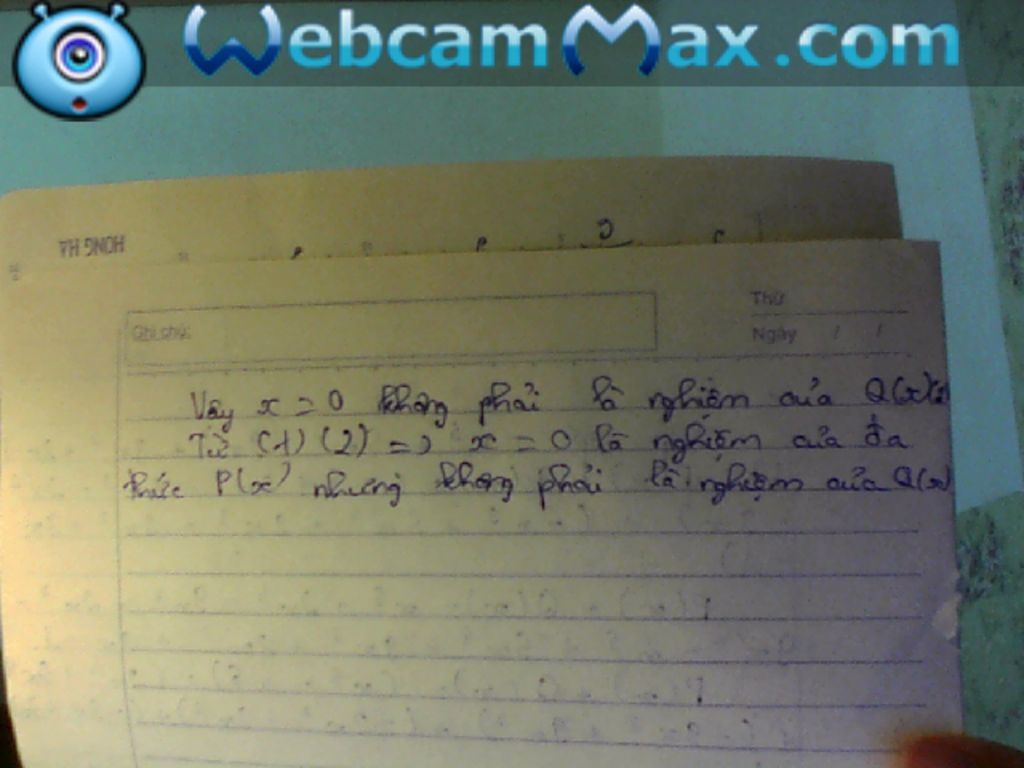 WebcamMax.com
HONG HA
Thứ
Ghi chú:
Ngày / /
Vậy x = 0 không phải là nghiệm của Q(x) (2)
Từ (1) (2) => x = 0 là nghiệm của đa
thức P(x) nhưng không phải là nghiệm của Q(x)